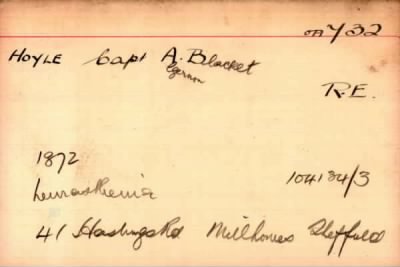 OA Y32
HOYLE Capt A. Blacket
Gernon
R.E.
1872
Neurasthenia
104184/3
41 Hastings Rd Millhouses Sheffield